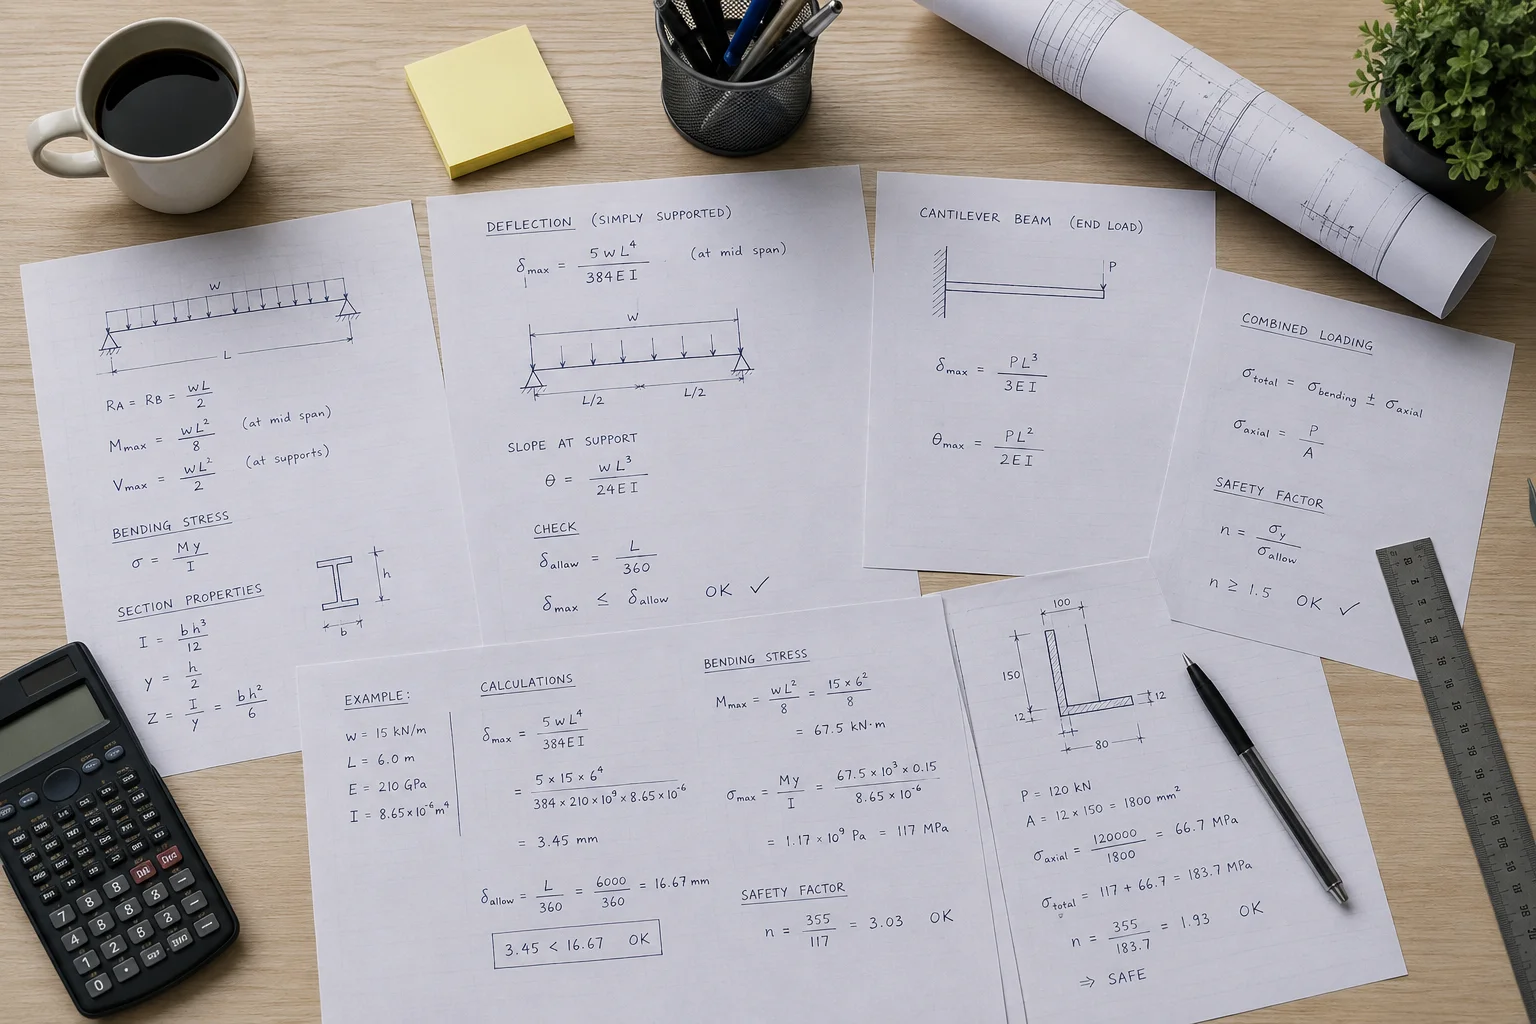 w
L
RA = RB = wL/2
Mmax = wL²/8 (at mid span)
Vmax = wL²/2 (at supports)
BENDING STRESS
σ = My/I
SECTION PROPERTIES
I = bh³/12
y = h/2
Z = I/y = bh²/6
h
b
DEFLECTION (SIMPLY SUPPORTED)
δmax = 5wL⁴/384EI (at mid span)
w
L/2 L/2
SLOPE AT SUPPORT
θ = wL³/24EI
CHECK
δallaw = L/360
δmax ≤ δallow OK ✓
CANTILEVER BEAM (END LOAD)
P
δmax = PL³/3EI
θmax = PL²/2EI
COMBINED LOADING
σtotal = σbending ± σaxial
σaxial = P/A
SAFETY FACTOR
n = σy/σallow
n ≥ 1.5 OK ✓
EXAMPLE:
w = 15 kN/m
L = 6.0 m
E = 210 GPa
I = 8.65×10⁻⁶ m⁴
CALCULATIONS
δmax = 5wL⁴/384EI
= 5 × 15 × 6⁴/384 × 210 × 10⁹ × 8.65 × 10⁻⁶
= 3.45 mm
δallow = L/360 = 6000/360 = 16.67 mm
3.45 < 16.67 OK
BENDING STRESS
Mmax = wL²/8 = 15 × 6²/8
= 67.5 kN·m
σmax = My/I = 67.5 × 10³ × 0.15/8.65 × 10⁻⁶
= 1.17 × 10⁹ Pa = 117 MPa
SAFETY FACTOR
n = 355/117 = 3.03 OK
100
150
12
12
80
P = 120 kN
A = 12 × 150 = 1800 mm²
σaxial = 120000/1800 = 66.7 MPa
σtotal = 117 + 66.7 = 183.7 MPa
n = 355/183.7 = 1.93 OK
⇒ SAFE
7 8 8
4 8 8
1 2 8
0